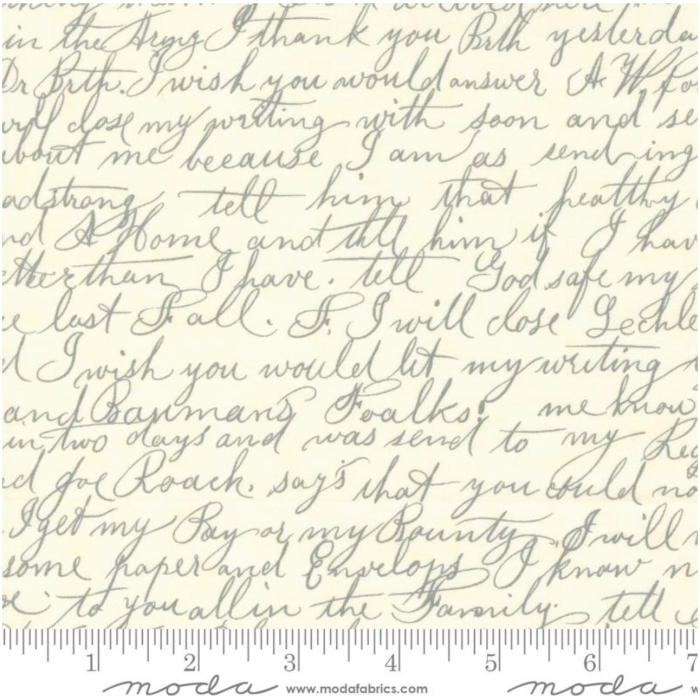 in the Army I thank you Brth yesterda
Dr Brth. I wish you would answer A W, Fo
will close my writing with soon and se
about me because I am as sending
adstrong tell him that healthy
nd A Home and tell him if I hav
etter than I have. tell God safe my
e last Fall. F. I will close Lechle
d I wish you would let my writing
and Bauman's Foalks. me know
in two days and was send to my Reg
d Joe Roach. say's that you could no
I get my Pay or my Bounty I will
some paper and Envelops I know n
to you all in the Family. tell
1 2 3 4 5 6 7
moda www.modafabrics.com moda